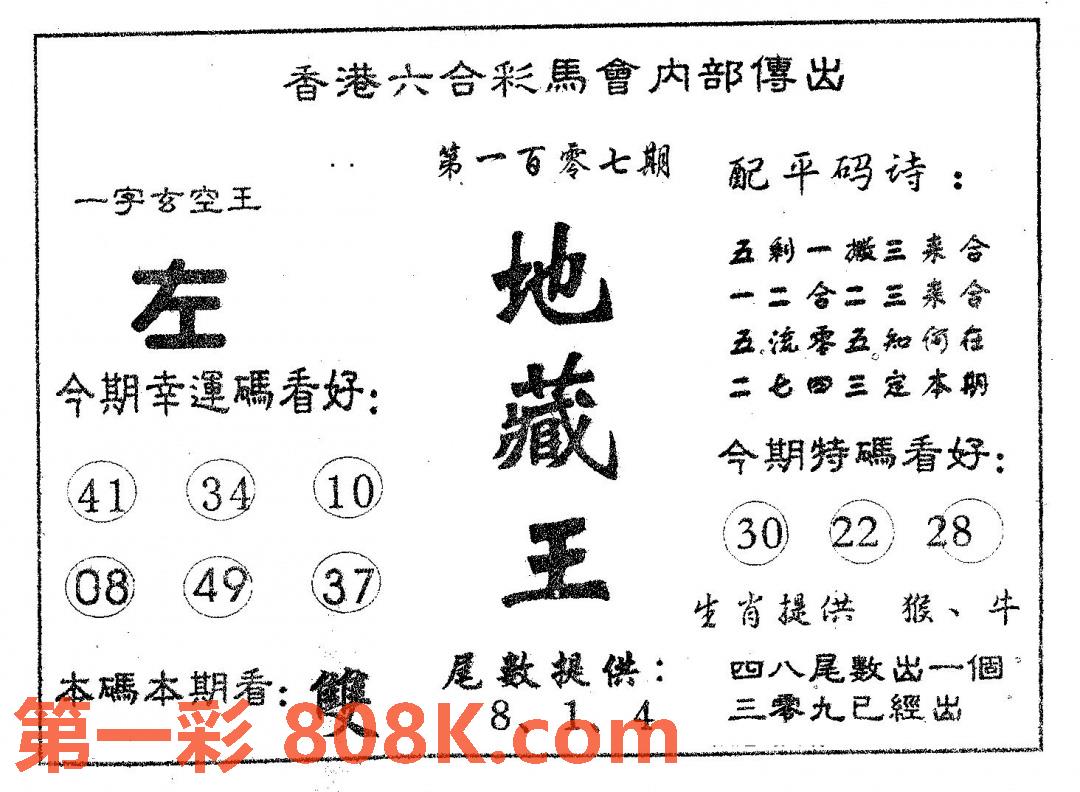 香港六合彩馬會内部傳出
第一百零七期
一字玄空王
左
今期幸運碼看好：
41 34 10
08 49 37
本碼本期看：雙
地藏王
尾數提供：
8、1、4
配平码诗：
五剩一搬三来合
一二合二三来合
五流零五知何在
二七四三定本期
今期特碼看好：
30 22 28
生肖提供 猴、牛
四八尾數出一個
三零九已經出
第一彩 808K.com